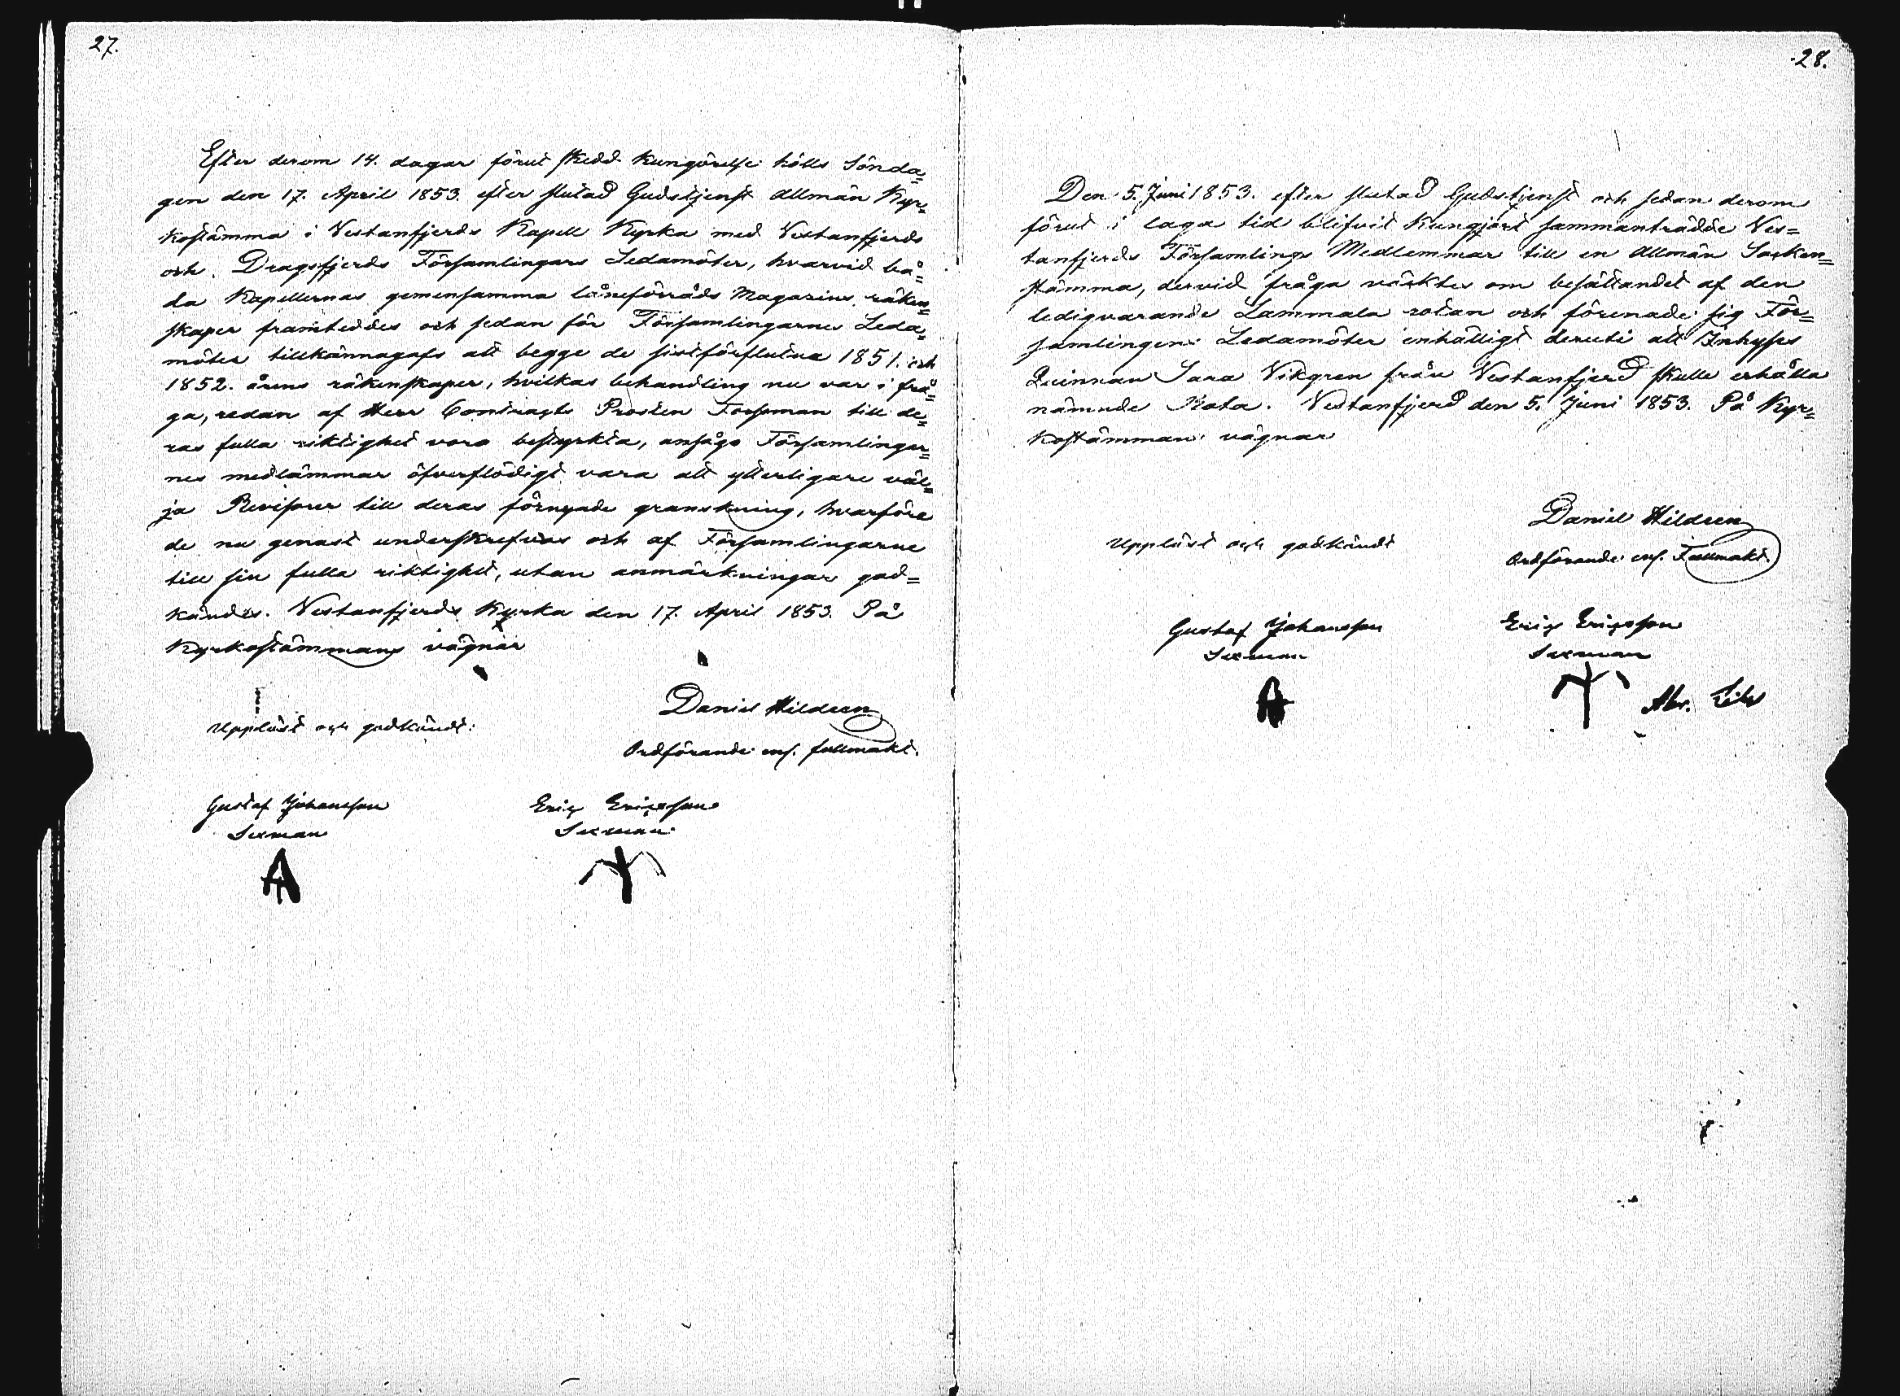 27.
Efter derom 14. dagar förut skedd kungörelse hölls Sönda-
gen den 17. April 1853. efter slutad Gudstjenst allmän Kyr-
kostämma i Vestanfjerds Kapell Kyrka med Vestanfjerds
och Dragsfjerds Församlingars Ledamöter, hvarvid bå-
da Kapellernas gemensamma låneförråds Magazins räken-
skaper framteddes och sedan för Församlingarnes Leda-
möter tillkännagafs att begge de sistförflutna 1851. och
1852. årens räkenskaper, hvilkas behandling nu var i frå-
ga, redan af Herr Contracts Prosten Forssman till de-
ras fulla riktighet voro bestyrkta, ansågo Församlingar-
nes medlämmar öfverflödigt vara att ytterligare väl-
ja Revisorer till deras förnyade granskning, hvarföre
de nu genast underskrefvos och af Församlingarne
till sin fulla riktighet, utan anmärkningar god-
kändes. Vestanfjerds Kyrka den 17. April 1853. På
Kyrkostämmans vägnar
Daniel Hildeen
Ordförande enl. fullmakt.
Uppläst och godkändt:
Gustaf Johansson Eric Ericsson
Sexman Sexman
28.
Den 5. Juni 1853. efter slutad Gudstjenst och sedan derom
förut i laga tid blifvit kungjort sammanträdde Ves-
tanfjerds Församlings Medlemmar till en allmän Socken-
stämma, dervid fråga väcktes om besättandet af den
ledigvarande Lammala rotan och förenade sig För-
samlingens Ledamöter enhälligt deruti att Inhyses
Qvinnan Sara Vikgren från Vestanfjerd skulle erhålla
nämnde Rota. Vestanfjerd den 5. Juni 1853. På Kyr-
kostämmans vägnar
Daniel Hildeen
Ordförande enl. Fullmakt.
Uppläst och godkändt
Gustaf Johansson Eric Ericsson
Sexman Sexman
Abr.